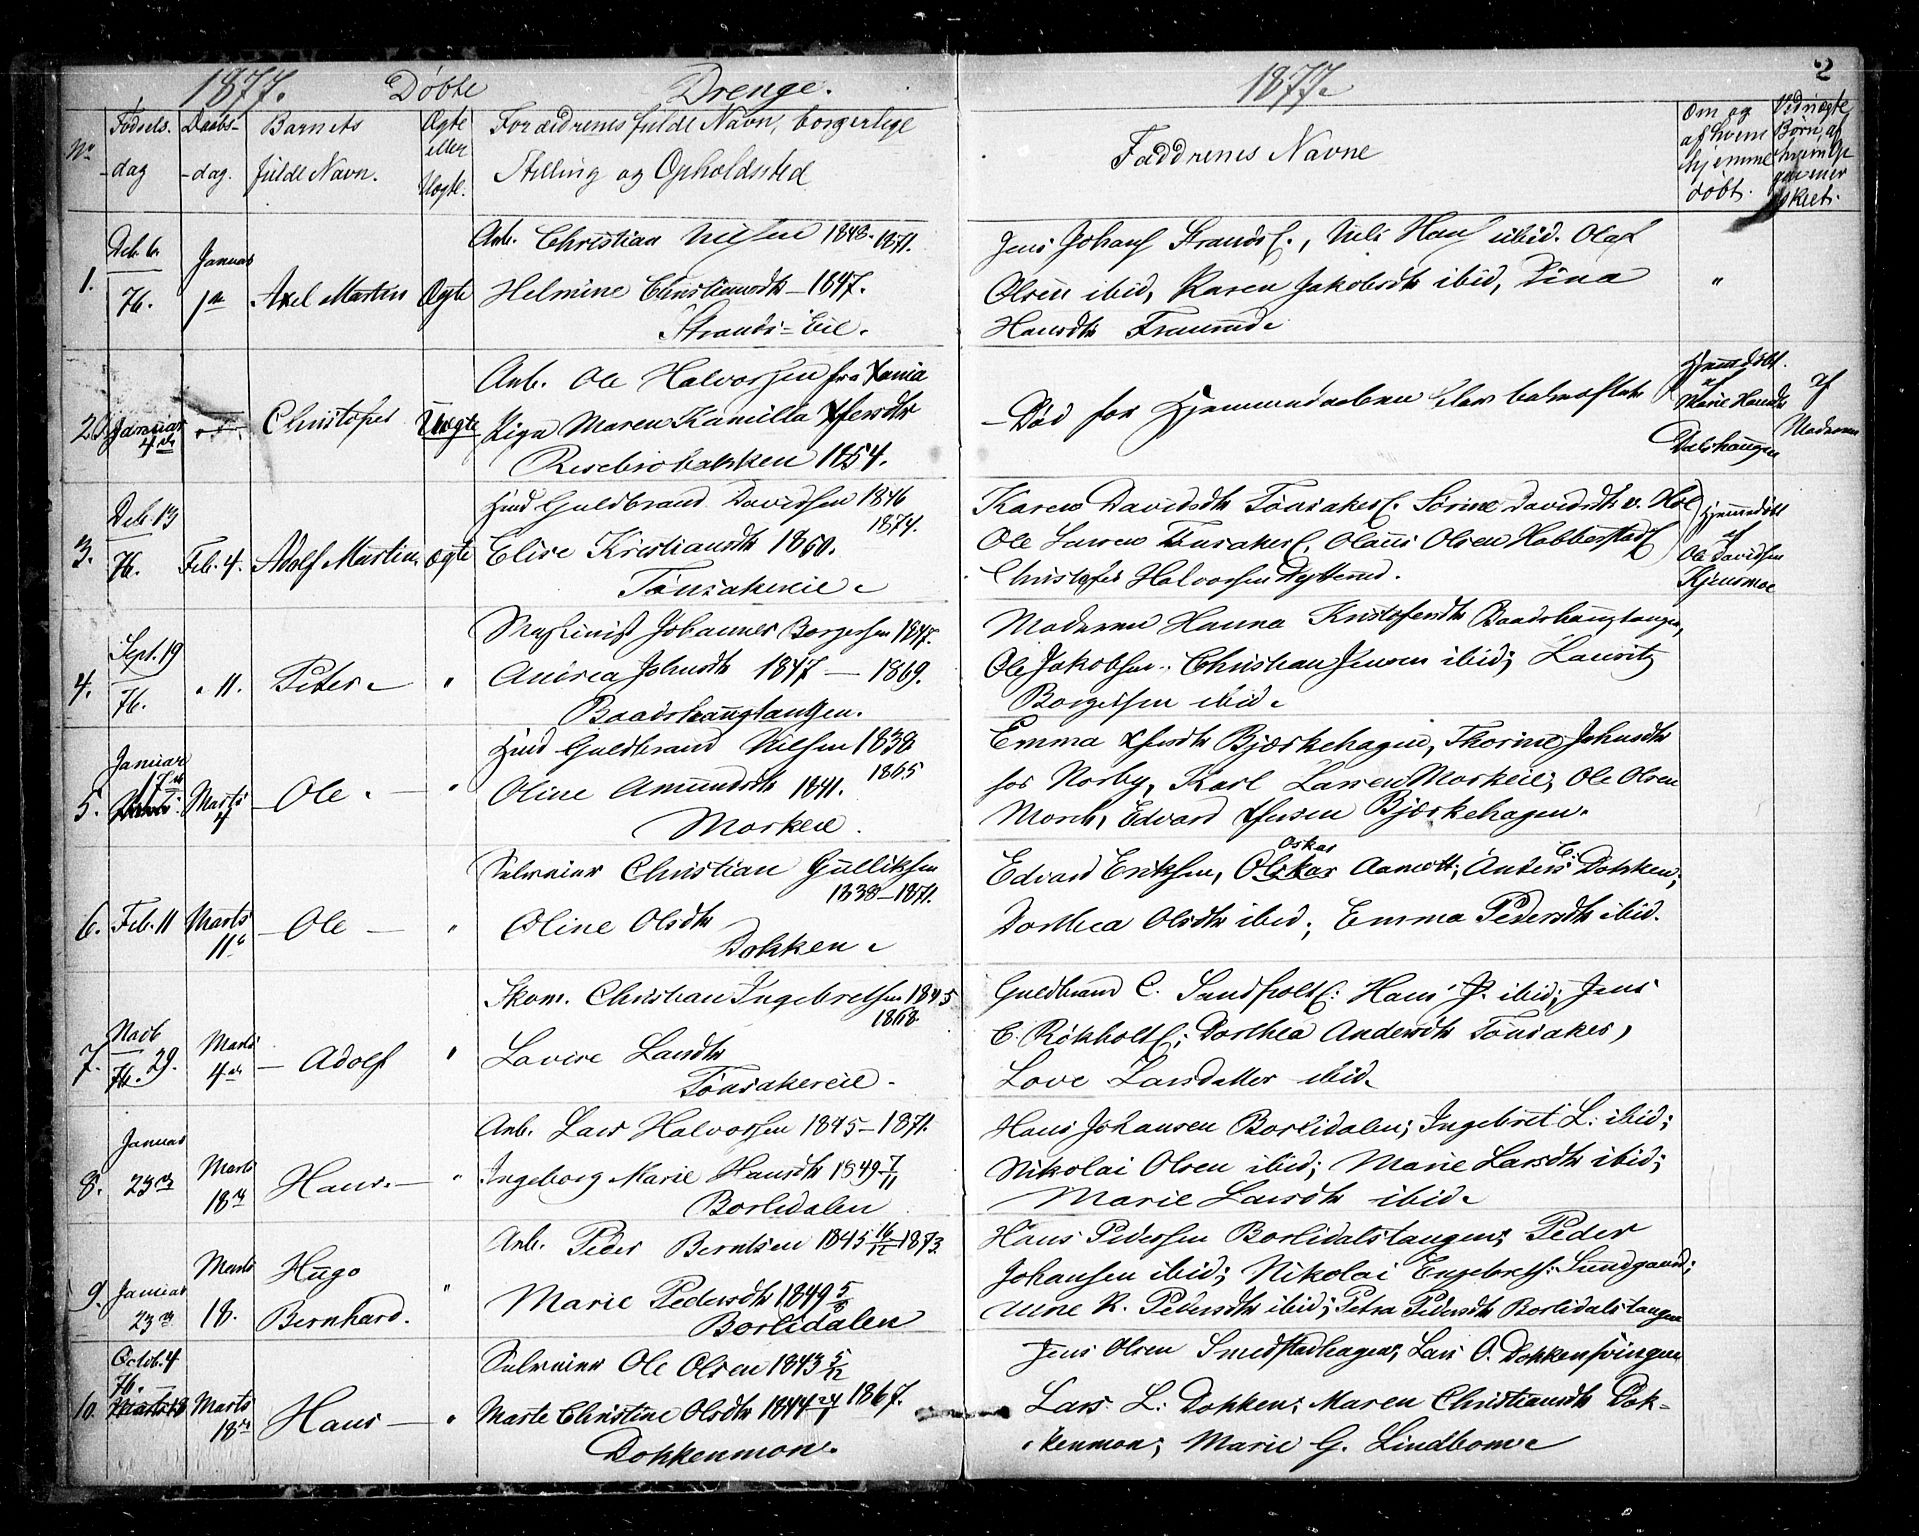 1877. Døbte Drenge.
1877.
2
No
Fødsels-dag
Daabs-dag.
Barnets fulde Navn.
Ægte eller Uægte.
Forældrenes fulde Navn, borgerlige
Stilling og Opholdssted
Faddrenes Navne
Om og af hvem hjemme døbt.
Ved uægte Børn, af
1.
Deb. 6 76.
Januar 1ste
Axel Martin
Ægte
Arb. Christian Nilsen 1848. 1871.
Helmine Christiansdtr - 1847.
Strands-Eie.
Jens Johans Strands E., Nils Hans ibid. Olaf
Olsen ibid, Karen Jakobsdtr ibid, Lina
Hansdtr
"
2.
Januar 4de
Christofer
Uægte
Arb. Ole Halvorsen fra Xania
Piga Maren Kamilla Xfersdtr
Risebrobakken 1854.
Død før Hjemmedaaben blev bekræftet
Hjemdøbt
af
Marie Hansdtr
Dalshaugen
af
Moderen
3.
Deb. 13 76.
Feb. 4.
Adolf Martin.
ægte
Hmd Guldbrand Davidsen 1846
1874.
Elise Kristiansdtr 1850.
Tønsakereie.
Karen Davidsdtr Tønsaker E. Sørine Davidsdtr v. Hol
Ole Larsen Tønsaker E. Olaus Olsen Habberstad E
Christofer Halvorsen
Hjemmedøbt
af
Ole Davidsen
Kjensmoe
4.
Sept. 19 76.
" 11.
Peter.
"
Maskinist Johannes Borgersen 1847.
Andrea Johnsdtr 1847 — 1869.
Baadshaugtangen.
Moderen Hanna Kristofersdtr Baadshaugtangen,
Ole Jakobsen. Christian Jensen ibid; Lauritz
Borgersen ibid.
5.
Januar 17de
Marts 4
Ole.
"
Hmd Guldbrand Nilsen 1838
1865
Oline Amundsdtr 1841.
Morkeie.
Emma Xfersdtr Bjørkehagen, Thorine Johnsdtr
hos Norby, Karl Larsen Morkeie; Ole Olsen
Mork, Edvard Xfersen Bjørkehagen.
6.
Feb. 11
Marts 11te
Ole
"
Selveier Christian Gulliksen
1838-1871.
Oline Olsdtr
Dokken.
Oskar
Edvard Eriksen, Olskar Aamott; Anders C. Dokken;
Dorthea Olsdtr ibid; Emma Pedersdtr ibid.
7.
Novb 29. 76.
Marts 4de
Adolf
"
Skom. Christian Ingebretsen 1845
1868.
Lovise Larsdtr
Tønsakereie.
Guldbrand C. Sandholt E: Hans P. ibid; Jens
C. Røkholt E; Dorthea Andersdtr Tønsaker,
Love Larsdatter ibid.
8.
Januar 23de
Marts 18de
Hans.
"
Arb. Lars Halvorsen 1845-1871.
Ingeborg Marie Hansdtr 1849 7/11
Borlidalen
Hans Johansen Borlidalen; Ingebret L. ibid;
Nikolai Olsen ibid; Marie Larsdtr ibid;
Marie Larsdtr ibid.
9.
Januar 23de
Marts 18.
Hugo
Bernhard.
"
Arb. Peder Berntsen 1845 16/12 1873
Marie Pedersdtr 1849 5/8
Borlidalen
Hans Pedersen Borlidalstangen; Peder
Johansen ibid; Nikolai Engebrets. Sundgaard;
Anne K. Pedersdtr ibid; Petra Pedersdtr Borlidalstangen
10.
Octob. 4 76.
Marts 18de
Hans
"
Selveier Ole Olsen 1843 5/12
Marte Christine Olsdtr 1844 24/1 1867.
Dokkenmon.
Jens Olsen Smedstadhagen; Lars O. Dokkensvingen
Lars L. Dokken; Maren Christiansdtr Dok-
kenmon; Marie G. Lindbom.